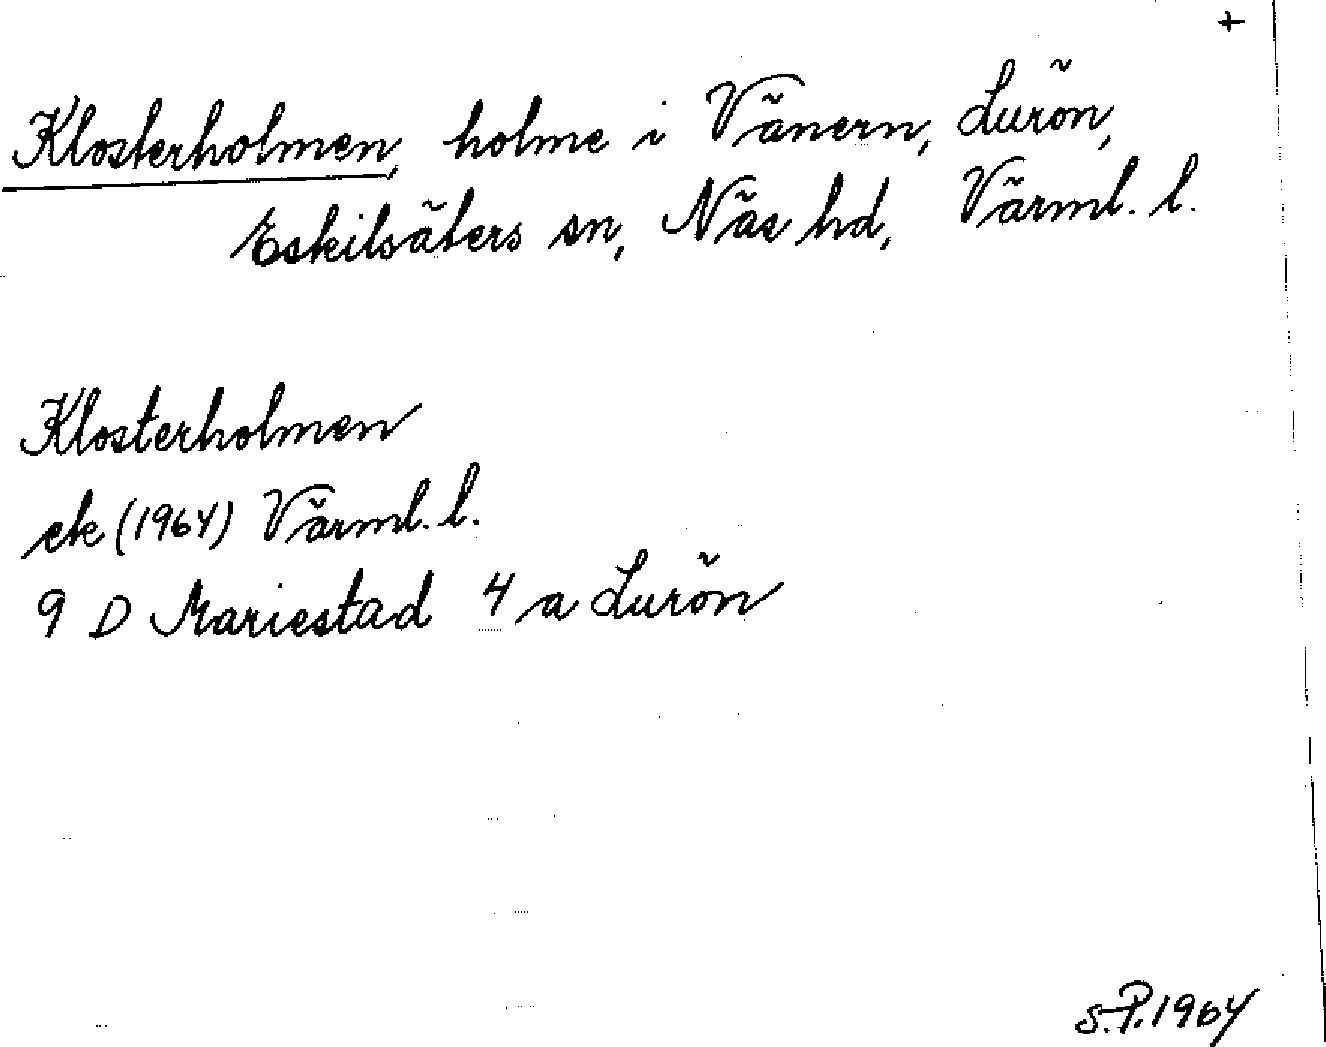 +
Klosterholmen, holme i Vänern, Lurön,
Eskilsäters sn, Näs hd, Värml. l.
Klosterholmen
ek (1964) Värml. l.
9 D Mariestad 4 a Lurön
S.P. 1964